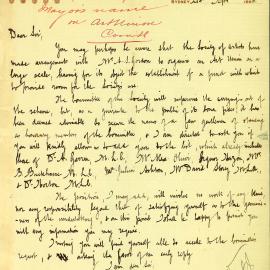 Mayor's name
on Art Union
Committ
SYDNEY,
Dear Sir,
You may perhaps be aware that the Society of Artists have
made arrangements with Mr. A. J. Gordon to organise an Art Union on a
large scale, having for its object the establishment of a fund with which
to provide rooms for the Society's use.
The Committee of the Society will supervise the carrying out of
the scheme, but, as a guarantee to the public of its bona fides, it has
been deemed advisable to secure the names of a few gentlemen of standing
as honorary members of the Committee, & I am directed to ask you if
you will kindly allow us to add yours to the list, which already includes
those of Dr.
B. Backhouse M.L.C.
& Dr. Norton M.L.C.
The position, I may add, will involve no work of any kind
nor any responsibility beyond that of satisfying yourself as to the genuine-
ness of the undertaking, & on this point I shall be happy to furnish you
with any information you may require.
Trusting you will find yourself able to accede to the Committee's
request, & asking the favor of an early reply
I am, dear Sir,